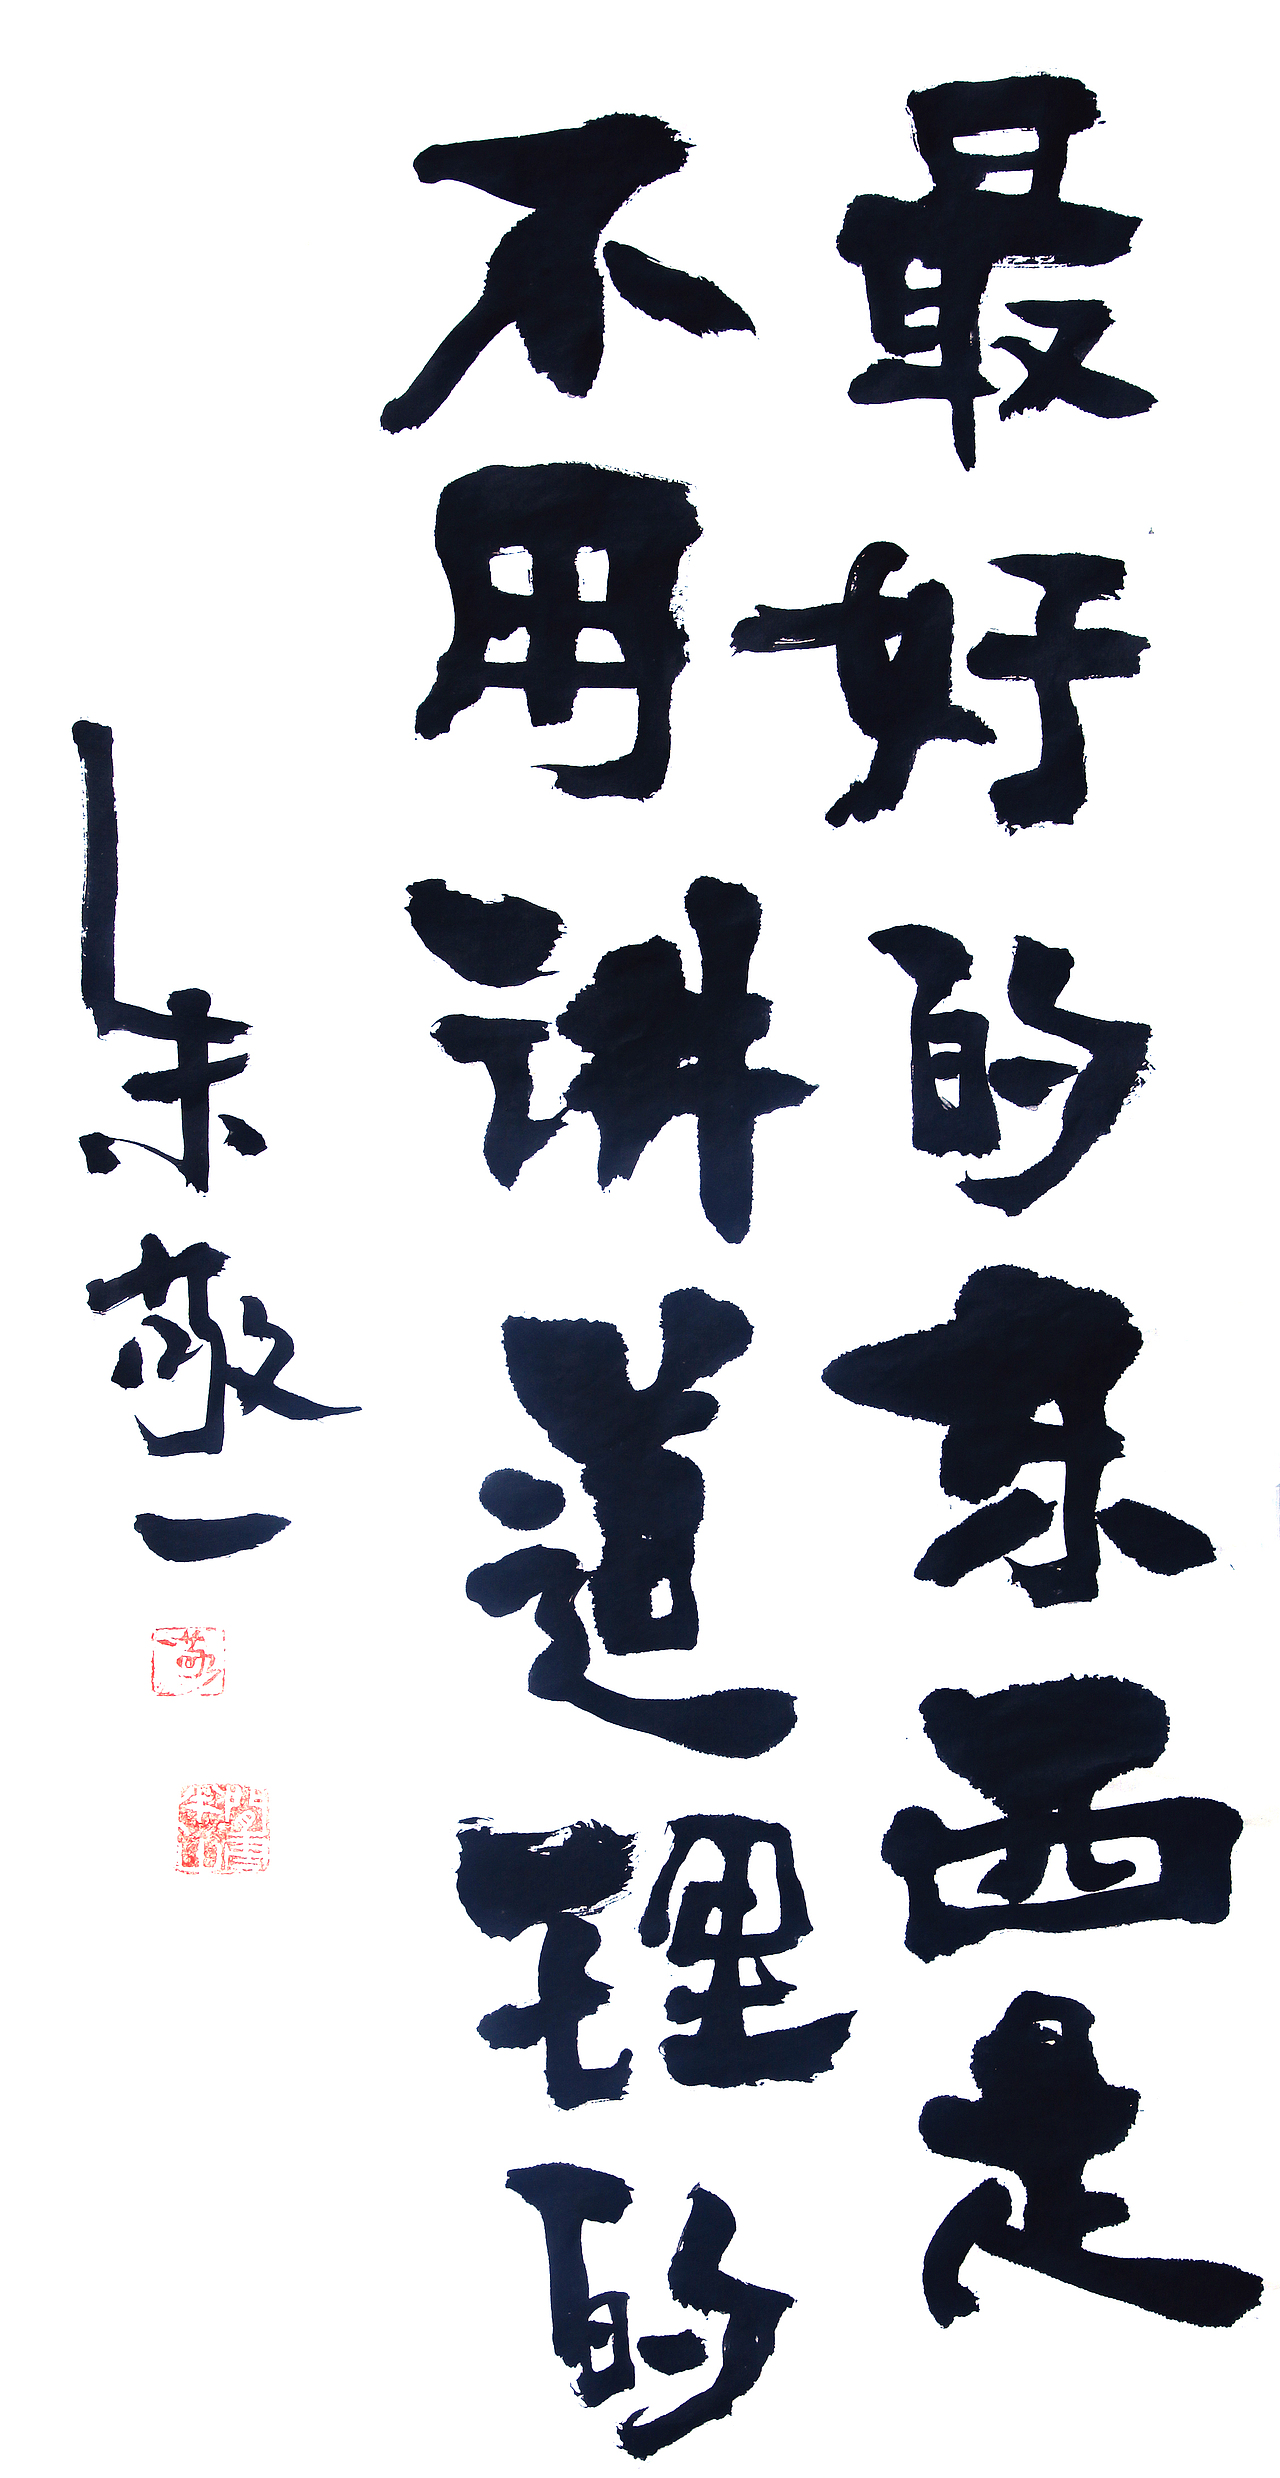 最好的东西是
不用讲道理的
朱敬一